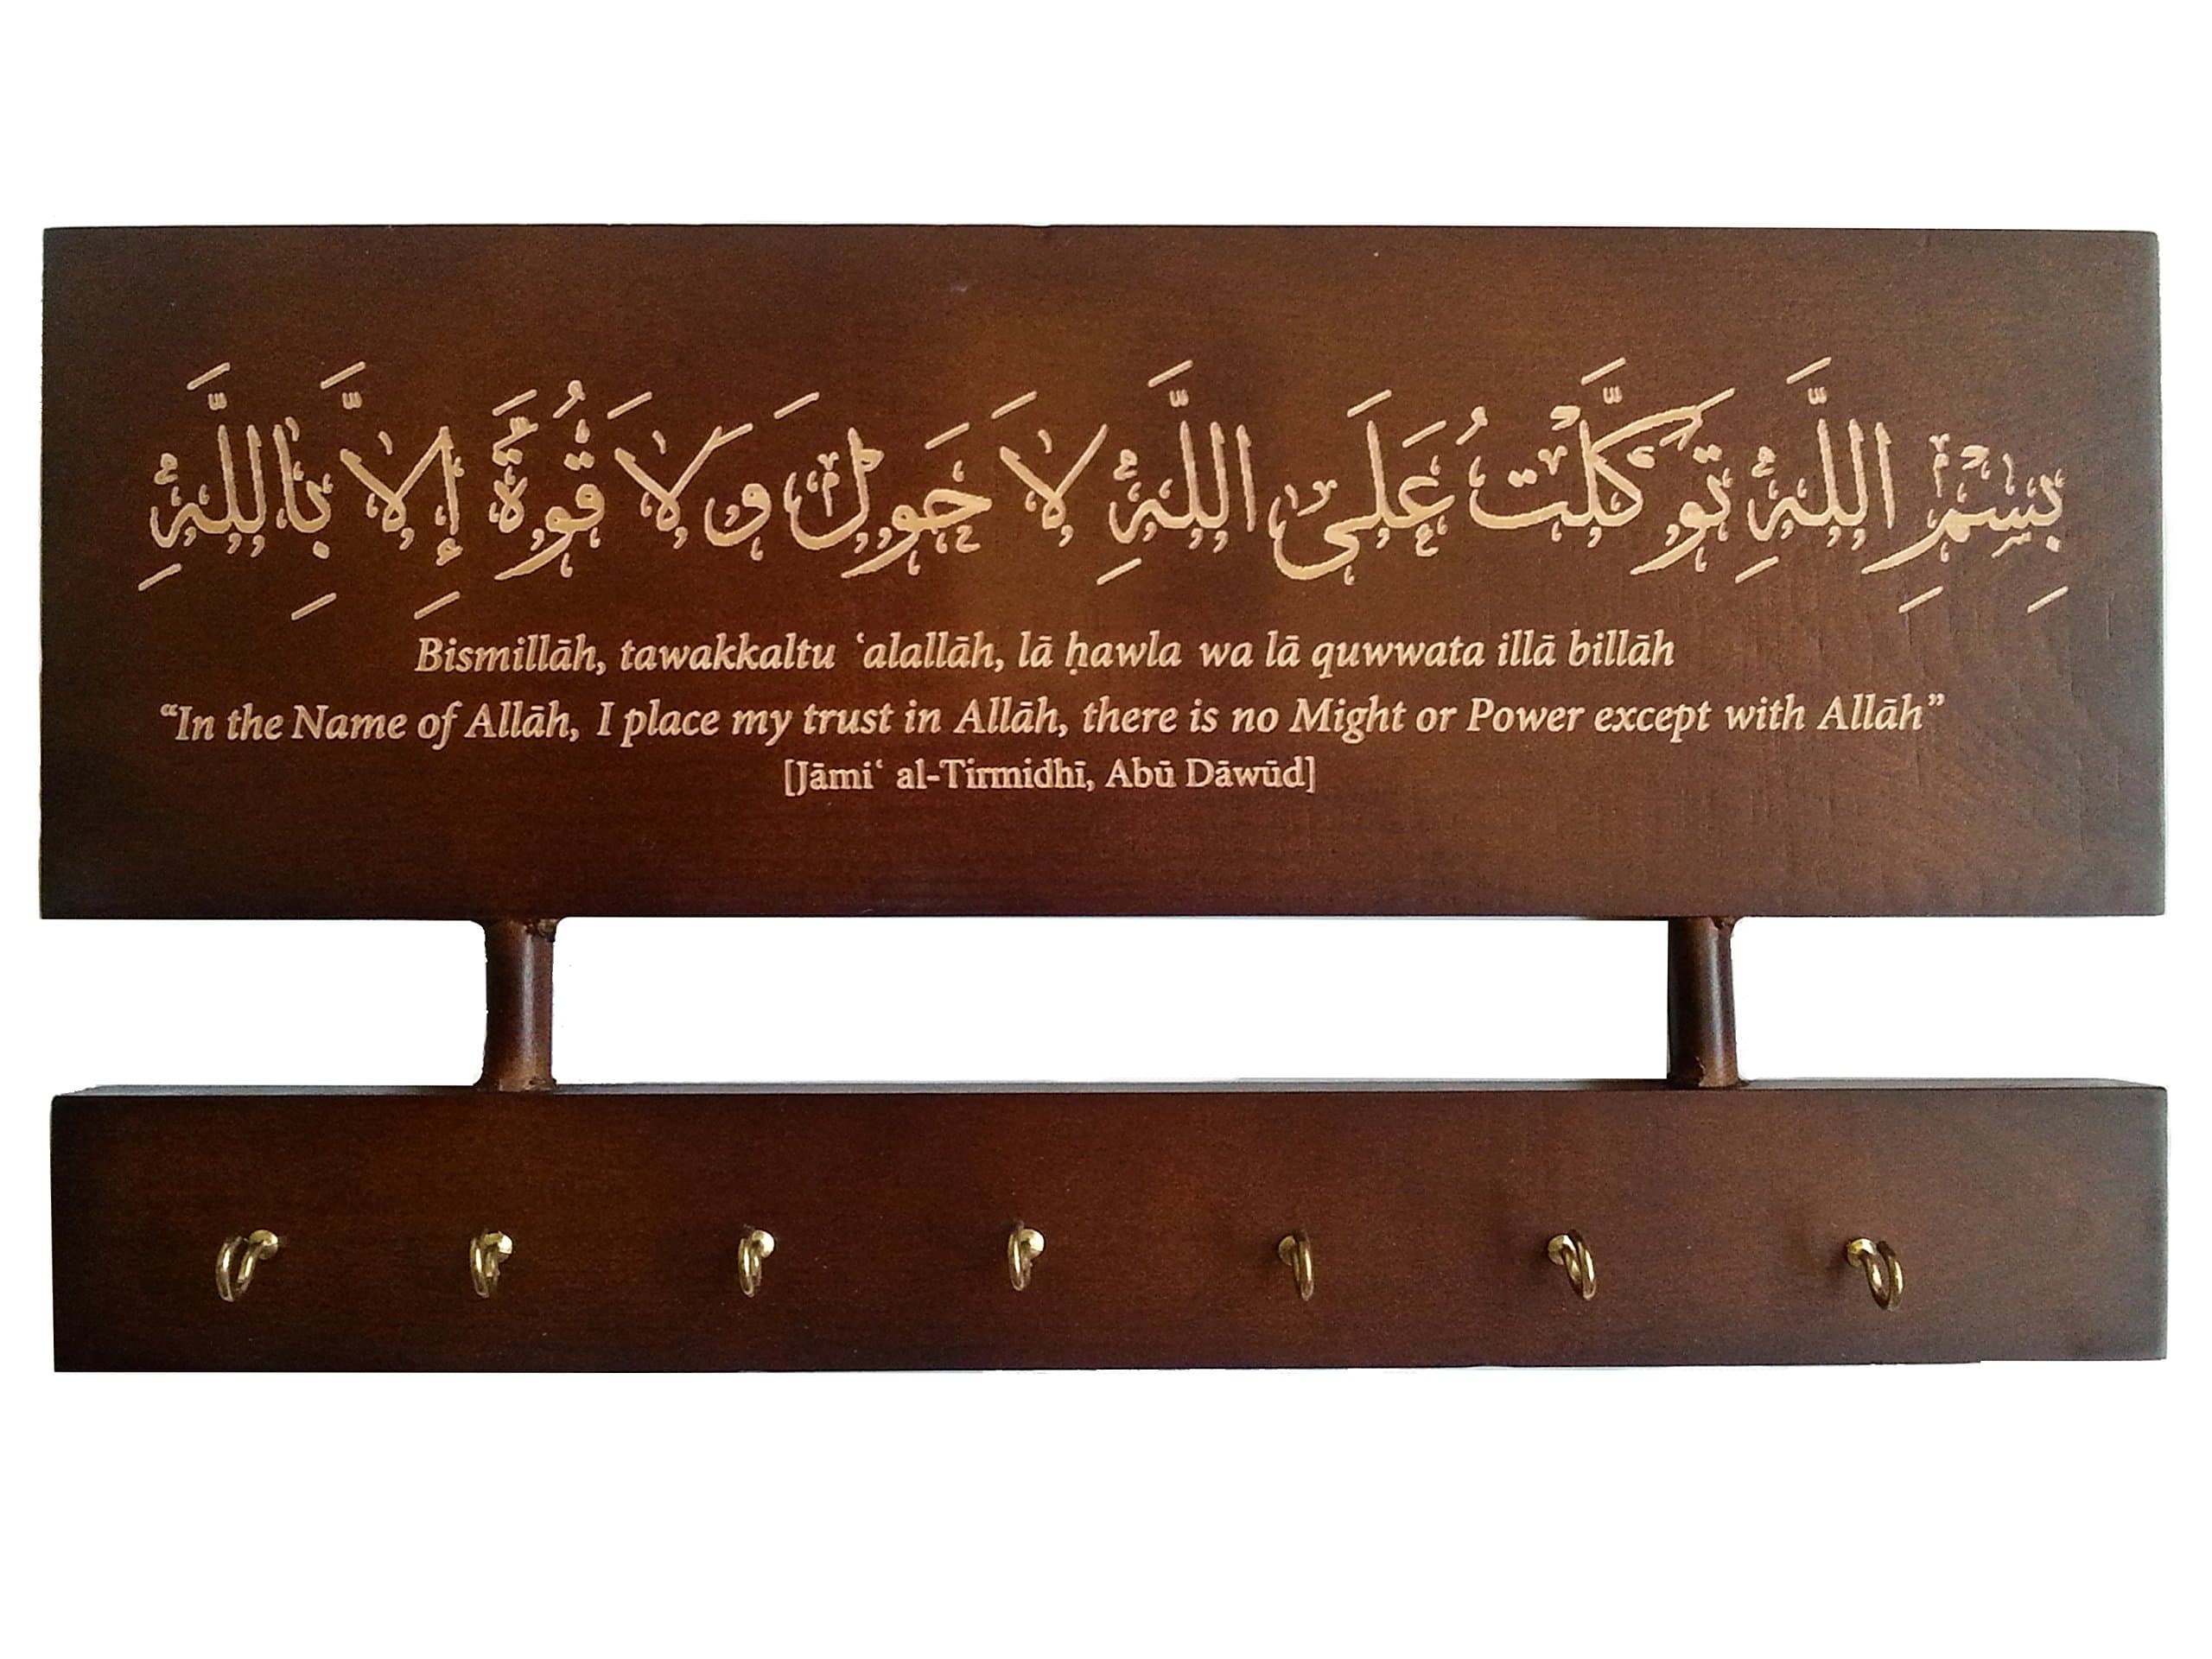 بِسْمِ اللَّهِ تَوَكَّلْتُ عَلَى اللَّهِ لَا حَوْلَ وَلَا قُوَّةَ إِلَّا بِاللَّهِ
Bismillāh, tawakkaltu ʿalallāh, lā ḥawla wa lā quwwata illā billāh
“In the Name of Allāh, I place my trust in Allāh, there is no Might or Power except with Allāh”
[Jāmiʿ al-Tirmidhī, Abū Dāwūd]